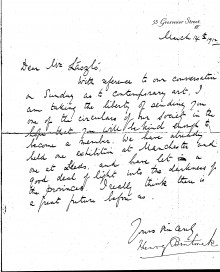 53 Grosvenor Street
March 14th 1912
Dear Mr László
With reference to our conversation
on Sunday as to contemporary art, I
am taking the liberty of sending you
one of the circulars of our society in the
hope that you will be kind enough to
become a member. We have already
held one exhibition at Manchester and
one at Leeds, and have let in a
good deal of light into the darkness of
the provinces. I really think there is
a great future before us.
Yours sincerely
Henry Bentinck